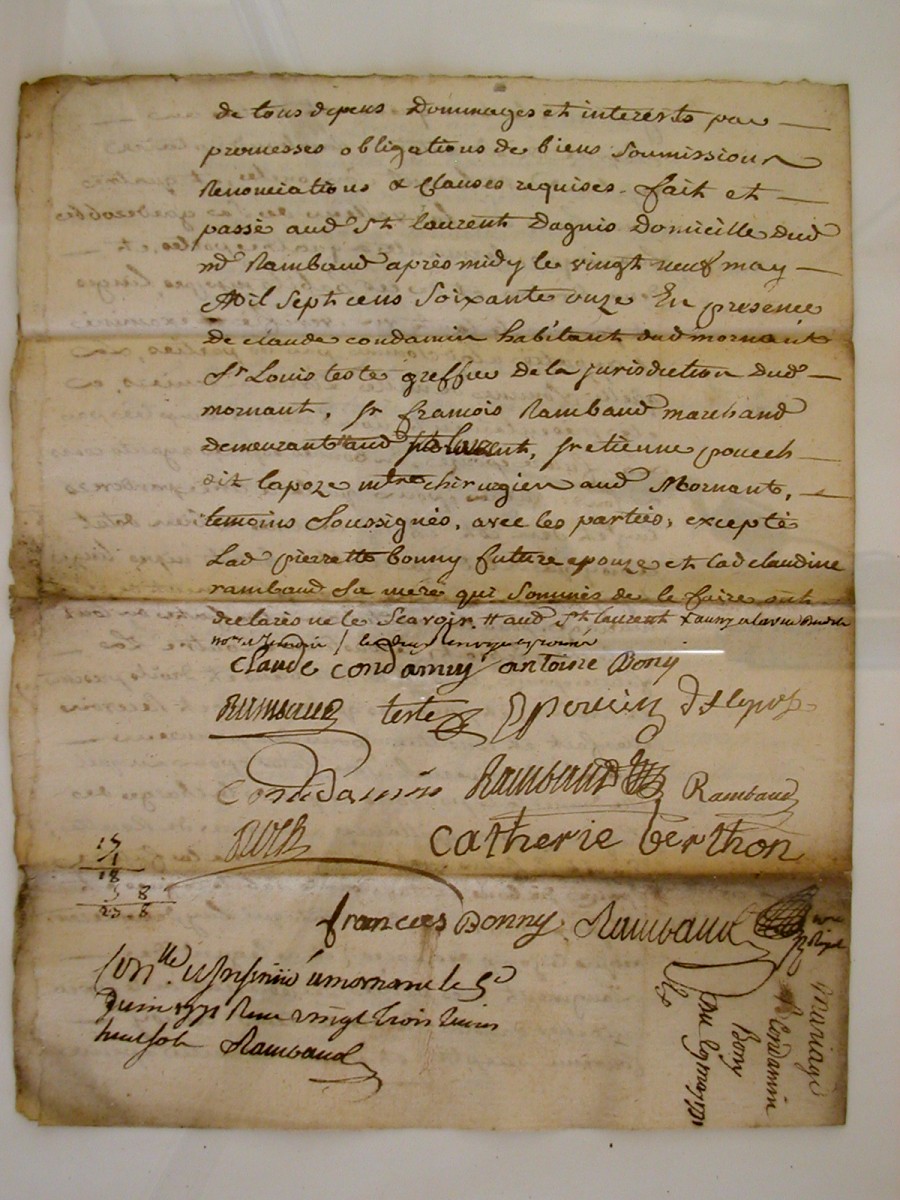 de tous depens Dommages et interests par
promesses obligations de biens soumissions
Renonciations & Clauses requises. fait et
passé aud St laurent Dagnis Domicille Dud
md Rambaud après midy le vingt neuf may
Mil Sept cens Soixante onze En presence
de claude condamin habitant dud mornant
Sr Louis teste greffier de la jurisdiction dud
mornant, sr francois Rambaud marchand
demeurant aud St laurent, sr etienne pouech
dit lapoze mtre chirugien aud Mornant,
temoins Soussignés, avec les parties, excepté
Lad pierrette bonny future epouze et lad claudine
rambaud Sa mere qui Sommés de le faire ont
declarés ne le Scavoir. # aud St laurent
Claude condamin antoine Bony
Rambaud teste
Condamin Rambaud Rambaud
Catherie berthon
18
5 8
23 8
francois Bonny Rambaud
amornant le
Juin 1771 Reçu vingt trois livres
huit sols Rambaud
Mariage
Condamin
Bony
Du 29 may 1771